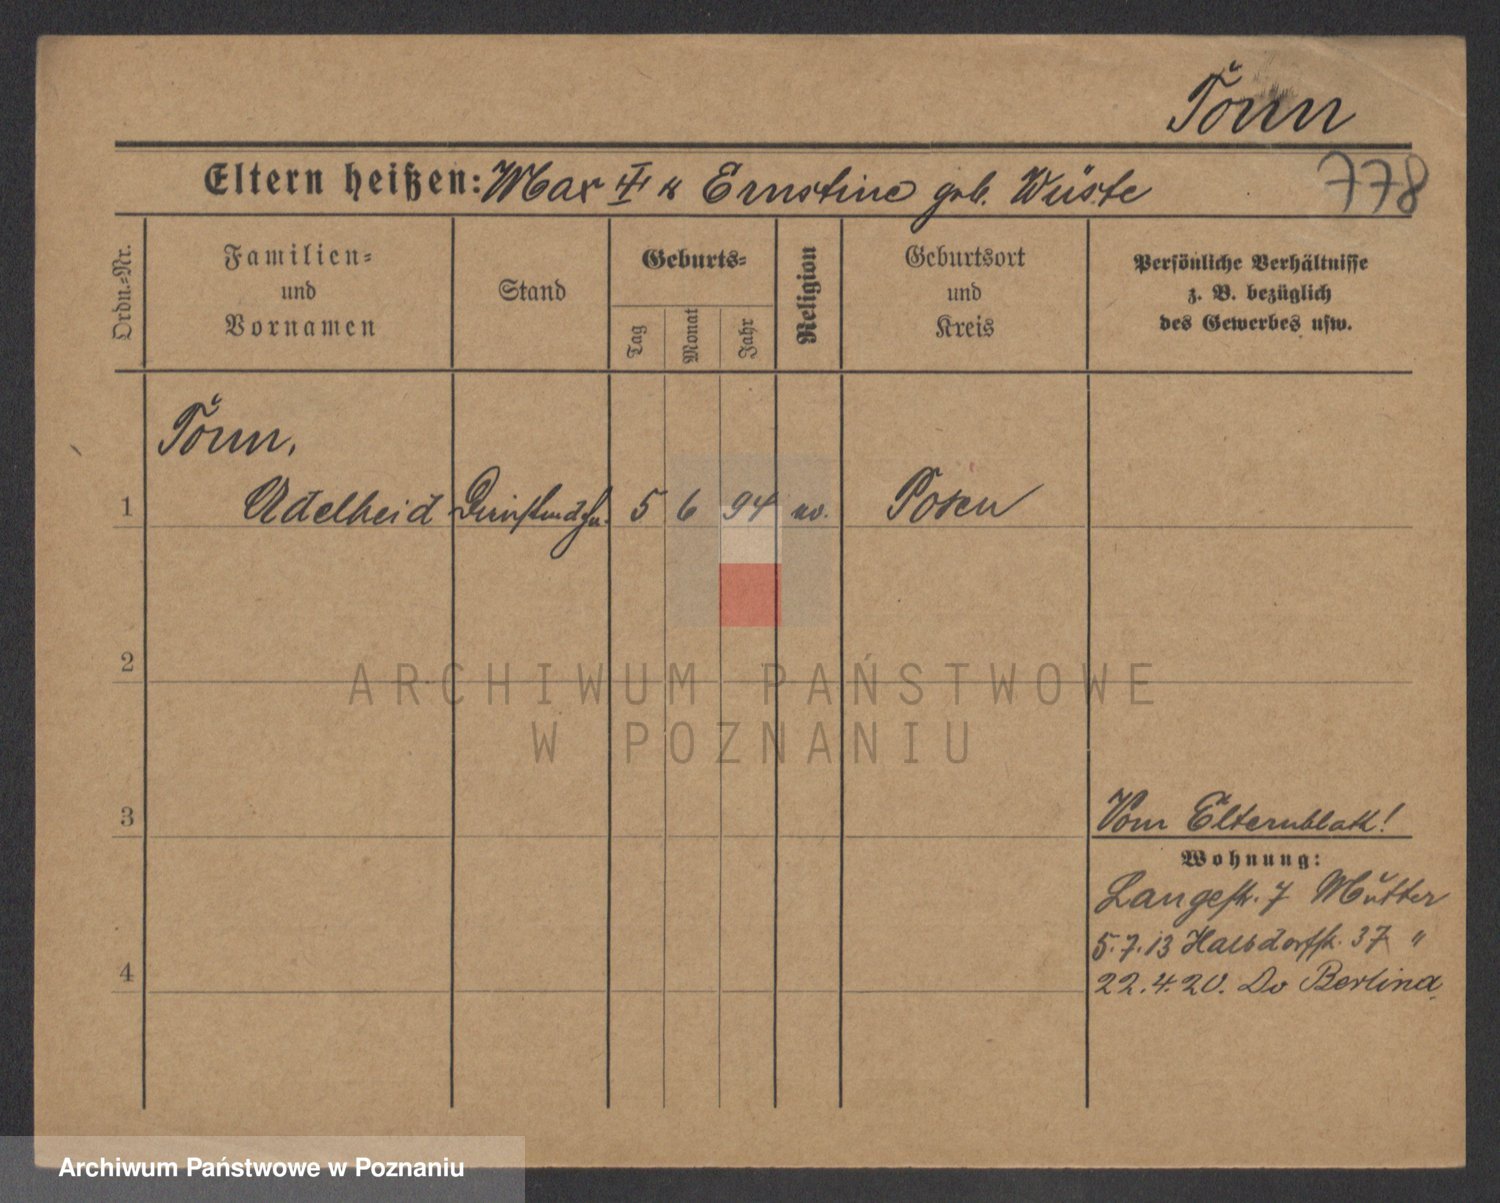 Tönn
Eltern heißen: Max u Ernstine geb. Wüste
778
Ordn.-Nr.
Familien-
und
Vornamen
Stand
Geburts-
Tag
Monat
Jahr
Religion
Geburtsort
und
Kreis
Persönliche Verhältnisse
z. B. bezüglich
des Gewerbes usw.
Tönn,
1 Adelheid 5 6 94 Posen
2
ARCHIWUM PAŃSTWOWE
W POZNANIU
3
Vom Elternblatt!
Wohnung:
Langestr. 7 Mutter
4
5.7.13 37 "
22.4.20. Do
Archiwum Państwowe w Poznaniu